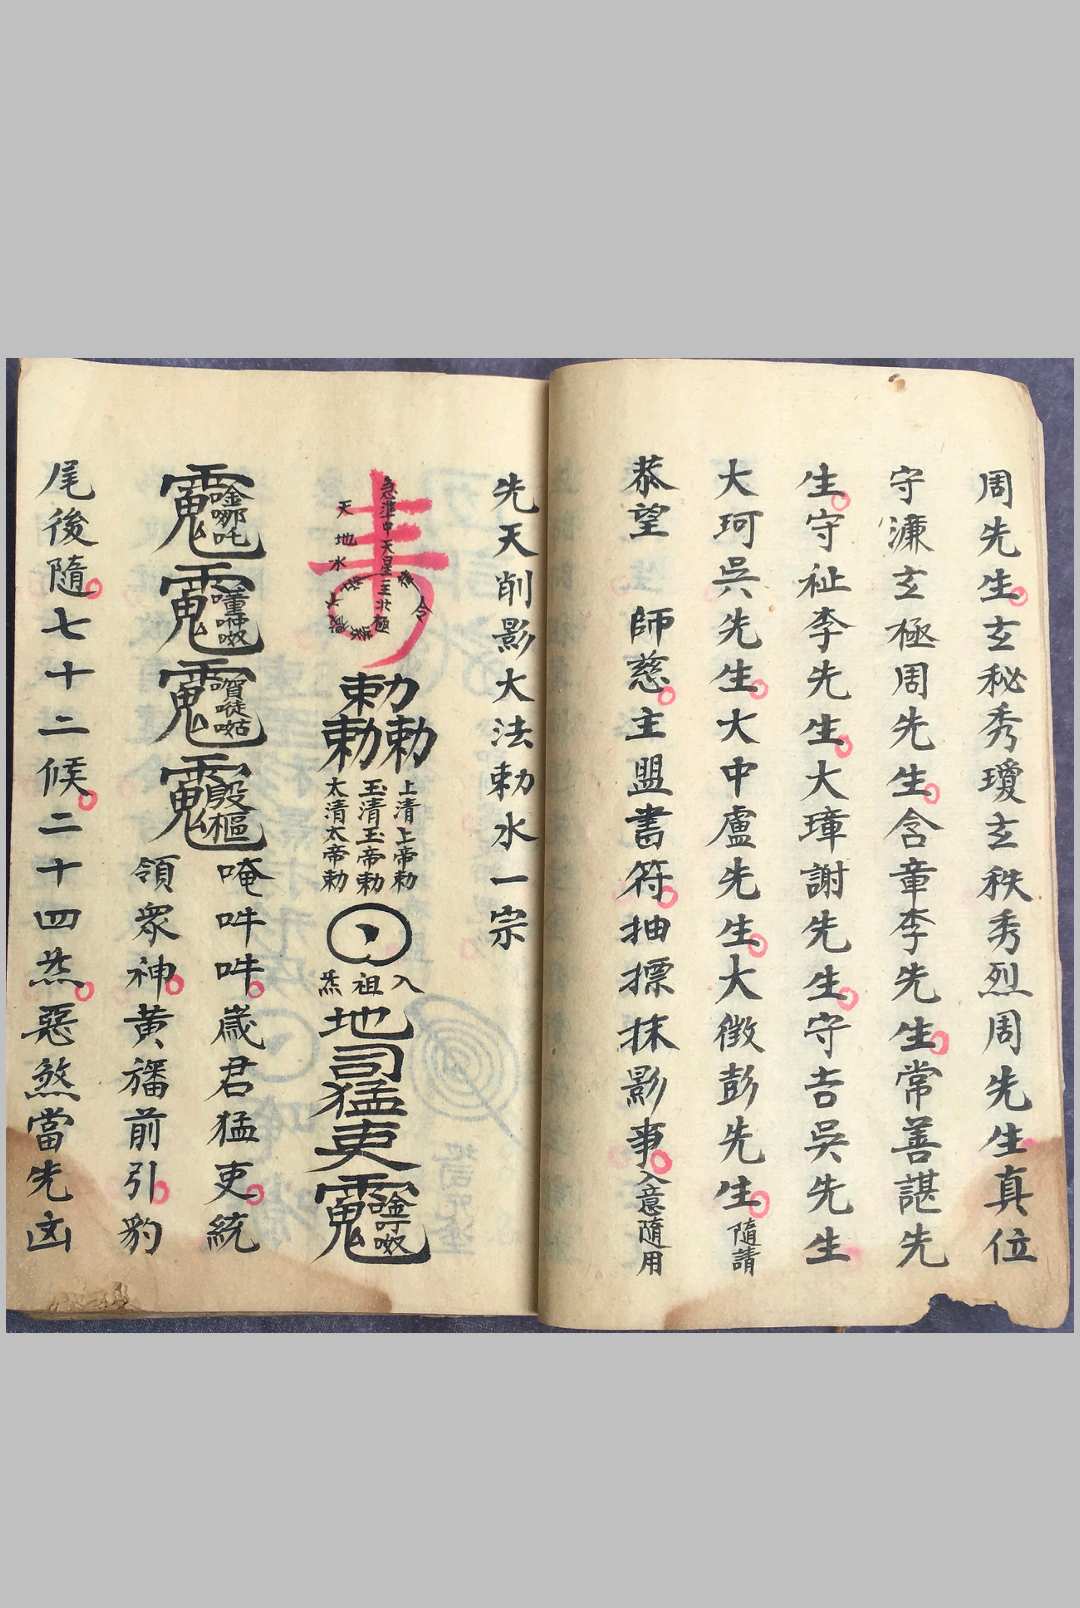 周先生玄秘秀瓊玄秩秀烈周先生真位
守濂玄極周先生含章李先生常善諶先
生守祉李先生大璋謝先生守吉吳先生
大珂吳先生大中盧先生大徵彭先生隨請
恭望 師慈主盟書符抽摽抹影事入意隨用
先天削影大法勅水一宗
急準中天星主北極
天地水
令
勅勅勅
上清上帝勅
玉清玉帝勅
太清太帝勅
入祖炁
地司猛吏
殷樞
唵吽吽歲君猛吏統
領眾神黃旛前引豹
尾後隨七十二候二十四炁惡煞當先凶